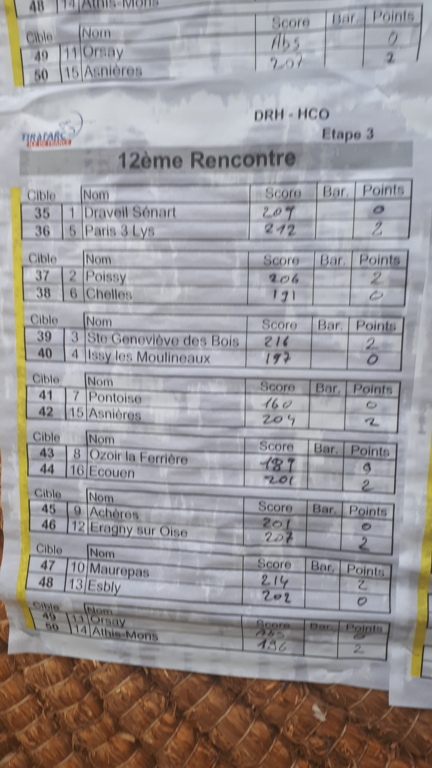 48 14 Athis-Mons
Cible Nom Score Bar. Points
49 11 Orsay Abs 0
50 15 Asnières 207 2
TIR A L'ARC
ILE DE FRANCE
DRH - HCO
Etape 3
12ème Rencontre
Cible Nom Score Bar. Points
35 1 Draveil Sénart 209 0
36 5 Paris 3 Lys 212 2
Cible Nom Score Bar. Points
37 2 Poissy 206 2
38 6 Chelles 191 0
Cible Nom Score Bar. Points
39 3 Ste Geneviève des Bois 216 2
40 4 Issy les Moulineaux 197 0
Cible Nom Score Bar. Points
41 7 Pontoise 160 0
42 15 Asnières 204 2
Cible Nom Score Bar. Points
43 8 Ozoir la Ferrière 187 0
44 16 Ecouen 201 2
Cible Nom Score Bar. Points
45 9 Achères 201 0
46 12 Eragny sur Oise 207 2
Cible Nom Score Bar. Points
47 10 Maurepas 214 2
48 13 Esbly 202 0
Cible Nom Score Bar. Points
49 11 Orsay Abs 0
50 14 Athis-Mons 196 2